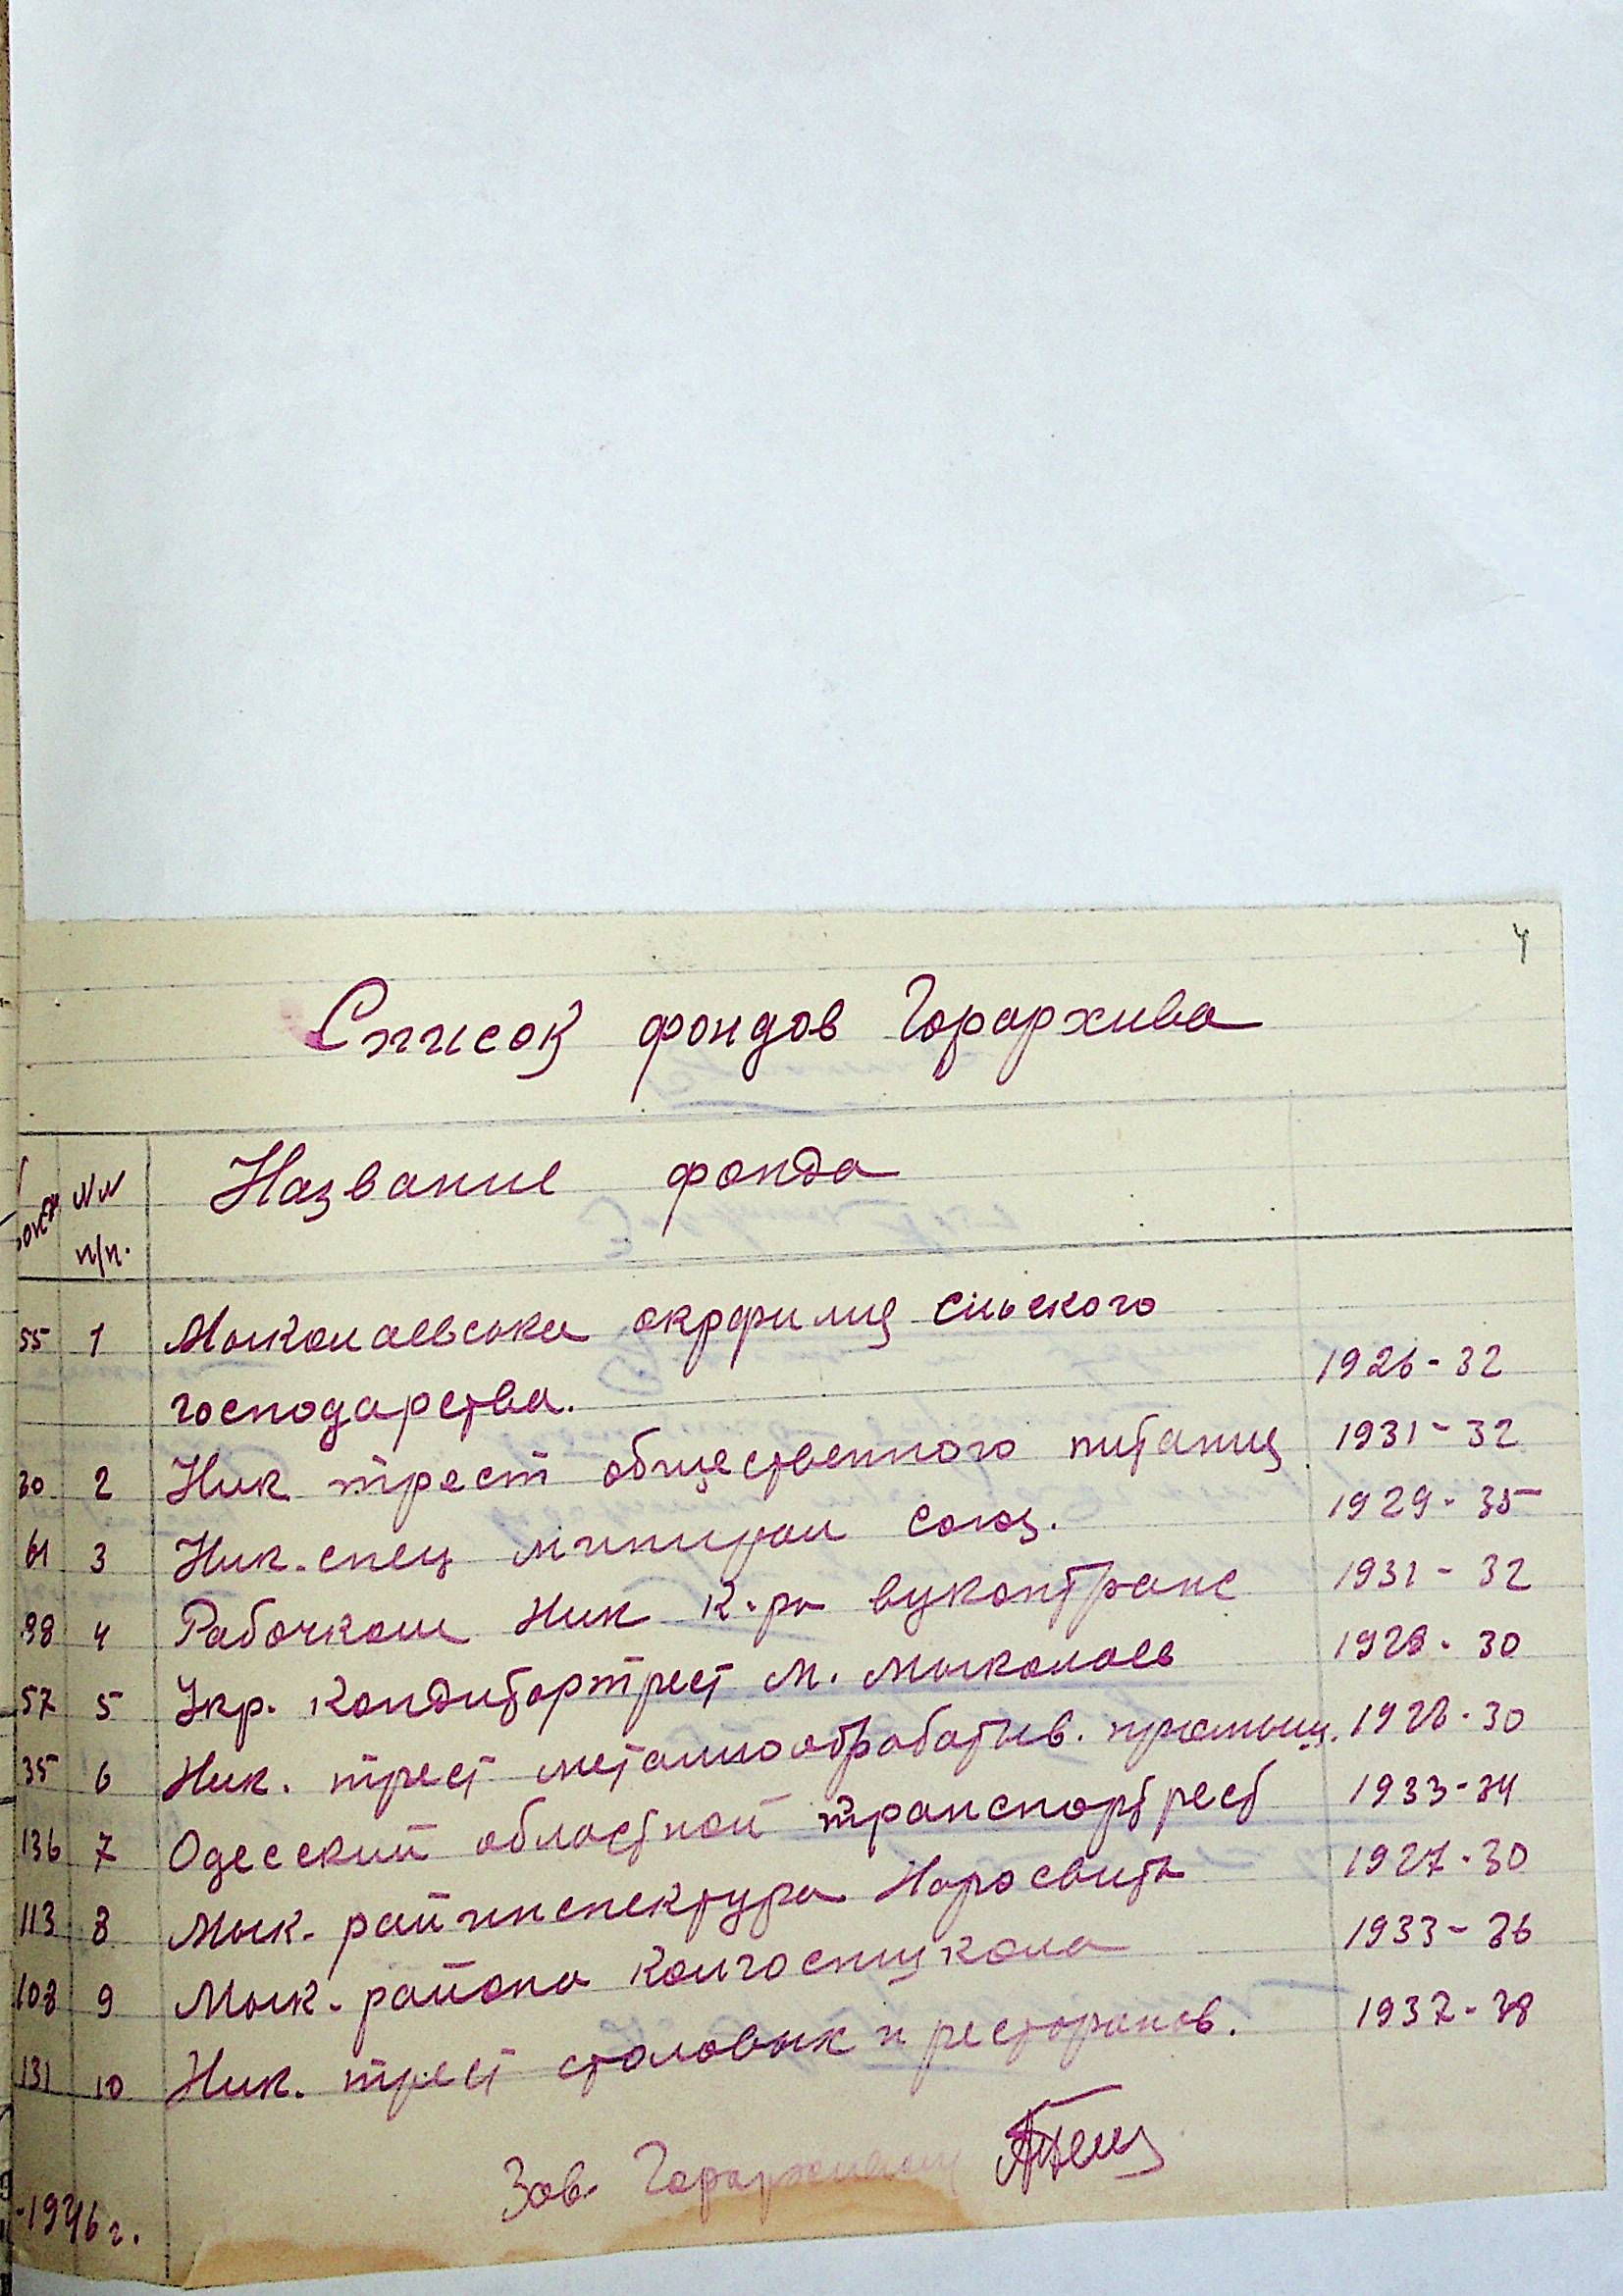 4
Список фондов Горархива
NN Название фонда
п/п.
55 1 Мыколаевська окрфилия сильского
господарства. 1926-32
30 2 Ник трест общественного питания 1931-32
61 3 Ник. спец союз. 1929-35
98 4 Рабочком Ник к-ра вуконтранс 1931-32
57 5 Укр. Кондитортрест м. Мыколаев 1928-30
35 6 Ник. трест металлообрабатыв. промыш. 1928-30
136 7 Одесский областной транспортрест 1933-34
113 8 Мык. райинспектура Наросвиты 1927-30
108 9 Мык. района 1933-36
131 10 Ник. трест столовых и ресторанов. 1937-38
Зав. Горархивом
-1946 г.